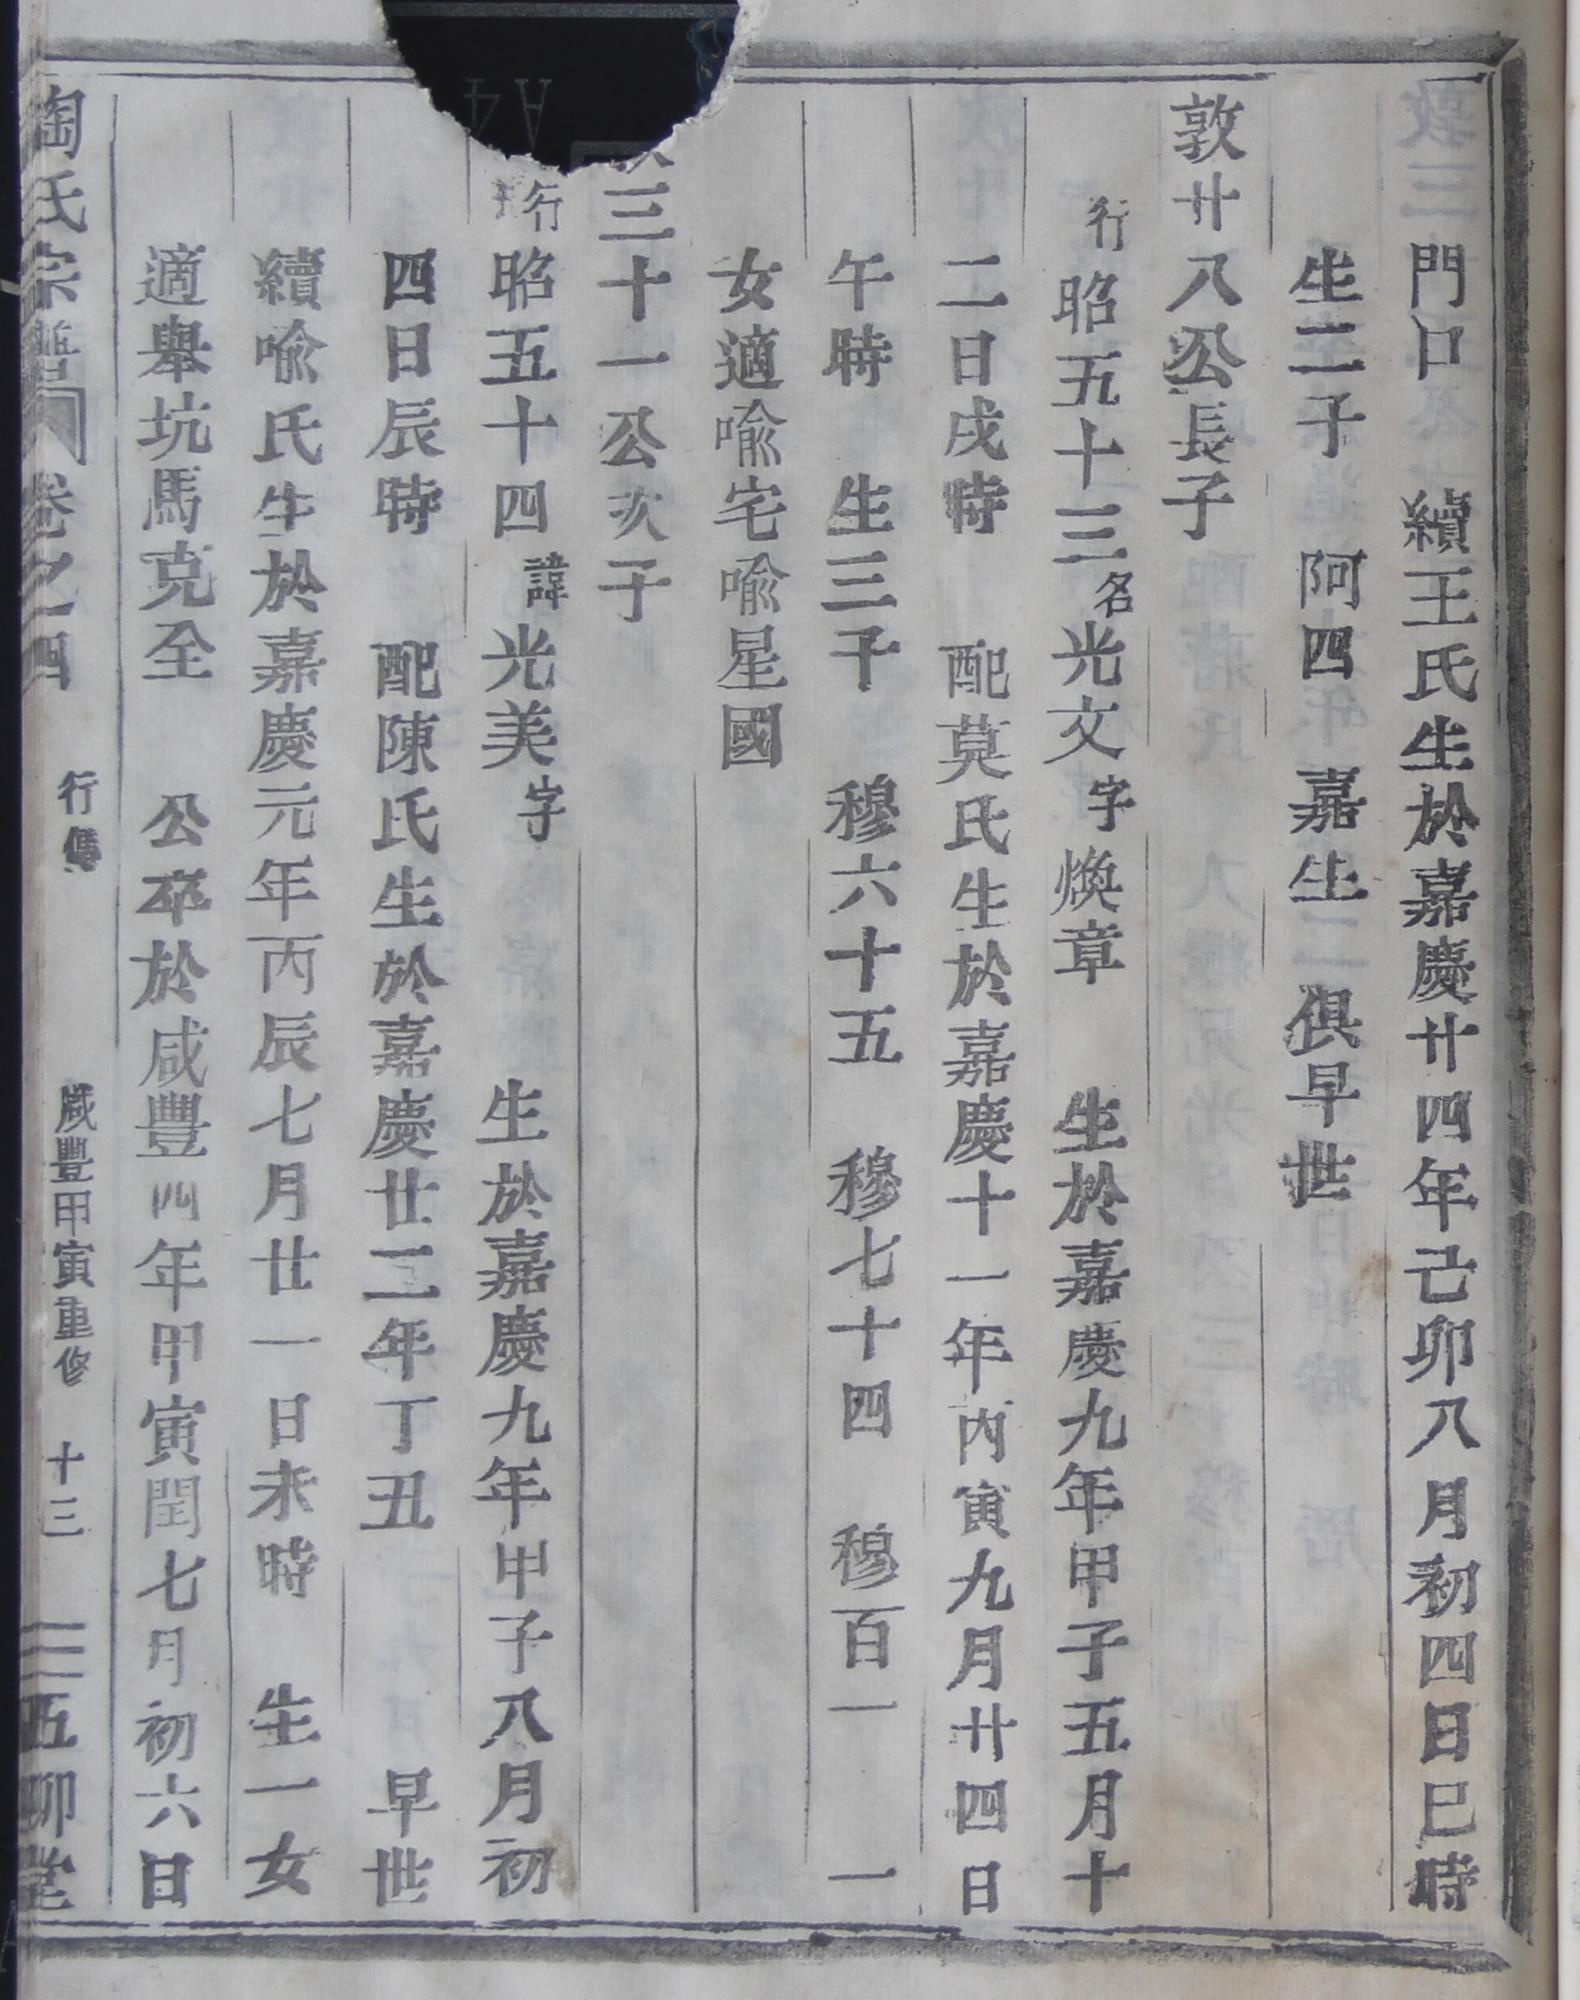 門口　續王氏生於嘉慶廿四年己卯八月初四日巳時
生二子　阿四　嘉生　俱早世
敦廿八公長子
行昭五十三名光文字煥章　生於嘉慶九年甲子五月十
二日戌時　配莫氏生於嘉慶十一年丙寅九月廿四日
午時　生三子　穆六十五　穆七十四　穆百一　一
女適喻宅喻星國
三十一公次子
行昭五十四諱光美字　生於嘉慶九年甲子八月初
四日辰時　配陳氏生於嘉慶廿二年丁丑　早世
續喻氏生於嘉慶元年丙辰七月廿一日未時　生一女
適舉坑馬克全　公卒於咸豐四年甲寅閏七月初六日
陶氏宗譜　卷之四　行傳　咸豐甲寅重修　十三　五柳堂
A4